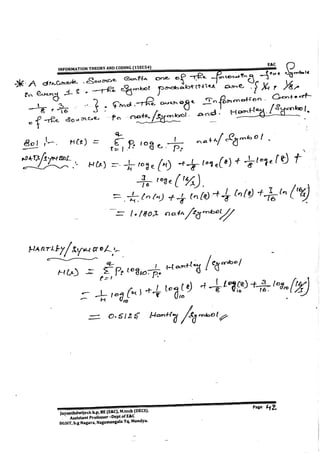 INFORMATION THEORY AND CODING (15EC54) E&C
* A discrete source emits one of the following five symbols
in every 1 s. The symbol probabilities are { 1/4, 1/8,
1/8, 3/16 }. Find the average Information Content
of the source in nats/symbol and Hartley/symbol.
Sol:- H(s) = Σ Pi log e 1/Pi nats/symbol.
NATS/SYMBOL
H(s) = 1/4 log e (4) + 1/8 log e (8) + 1/8 log e (8) +
3/16 log e (16/3).
= 1/4 ln(4) + 1/8 ln(8) + 1/8 ln(8) + 3/16 ln(16/3)
= 1.1803 nats/symbol//
HARTLEY/SYMBOL:-
H(s) = Σ Pi log10 1/Pi Hartley/symbol
= 1/4 log10(4) + 1/8 log10(8) + 1/8 log10(8) + 3/16 log10(16/3)
= 0.5125 Hartley/symbol//
Jayanthdwijesh h.p, BE (E&C), M.tech (DECS). Page 42
Assistant Professor -Dept of E&C
BGSIT, b.g Nagara, Nagamangala Tq, Mandya.